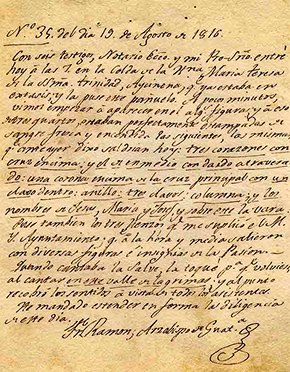 Nº 35. del dia 19. de Agosto de 1816.
Con seis testigos, Notario Ecco. y mi Pro-Srio entré
hoy á las 2. en la Celda de la Rma. Maria Teresa
de la Ssma. Trinidad, Aycinena, q. ya estaba en
extasis; y la puse este panuelo. A poco minutos,
vimos empezar á aparecer en el, figuras, y á eso de
tres quartos, estaban perfectamente estampadas de
sangre fresca y encendida las siguientes, las mismas
q. anteayer dixo saldrian hoy: tres corazones con
cruz encima; y el de en medio con dardo atravesa-
do: una corona encima de la cruz principal con un
clavo dentro: anillo: tres clavos, columna; y los
nombres de Jesus, Maria y José, y sobre este la vara.
Puse tambien los tres lienzos q. me suplico el M. I.
Ayuntamiento; q. á la hora y media salieron
con diversas figuras é insignias de la Pasion.
Quando cantaba la Salve, la toqué pa. q. volviese,
al cantar en este valle de lagrimas, y al punto
recobró los sentidos á vista de todos los asistentes.
He mandado extender en forma las diligencias
de este dia.
Fr. Ramon, Arzobispo de Guata.